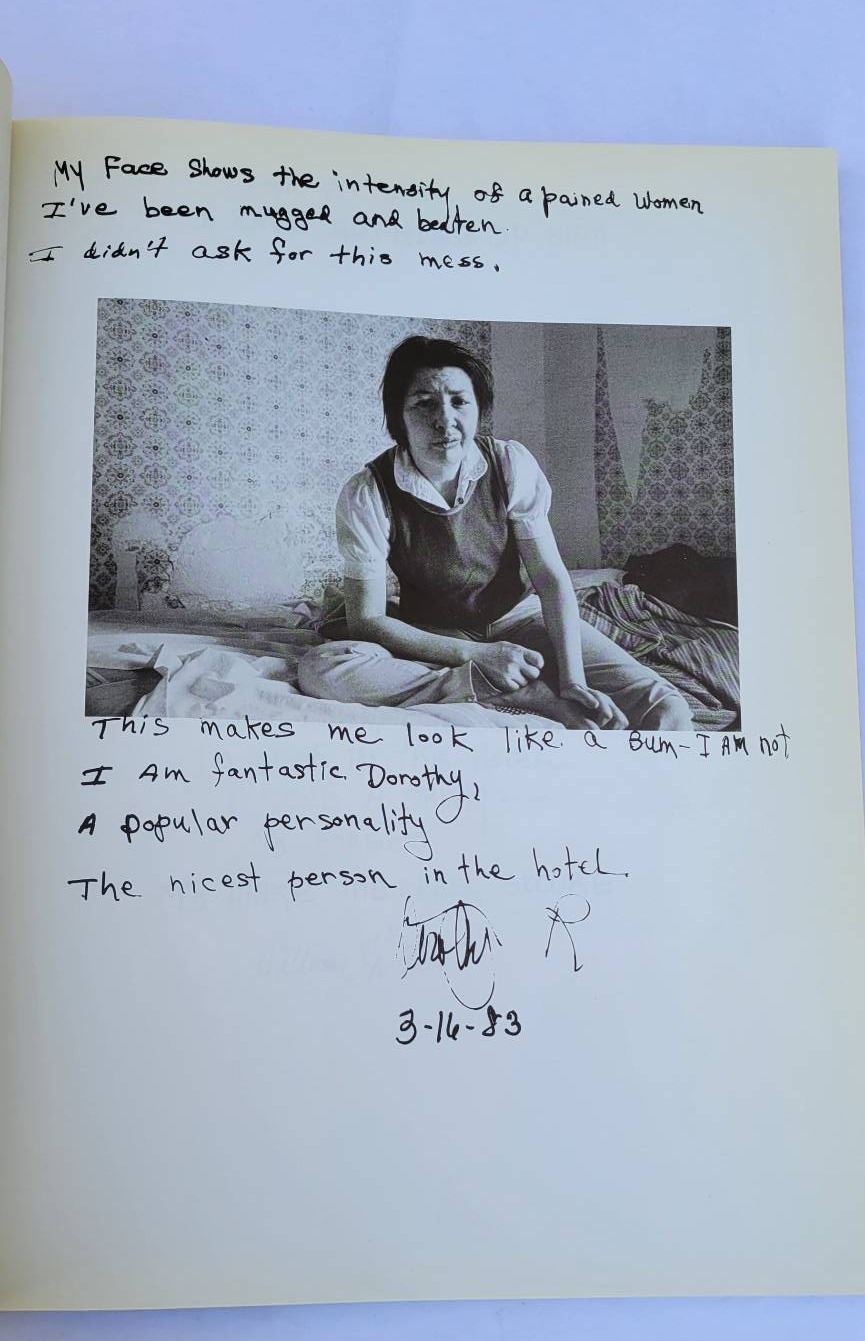 My Face Shows the intensity of a pained Women
I've been mugged and beaten.
I didn't ask for this mess.
This makes me look like a Bum-I AM not
I AM fantastic Dorothy,
A popular personality
The nicest person in the hotel.
Dorothy R
3-16-83